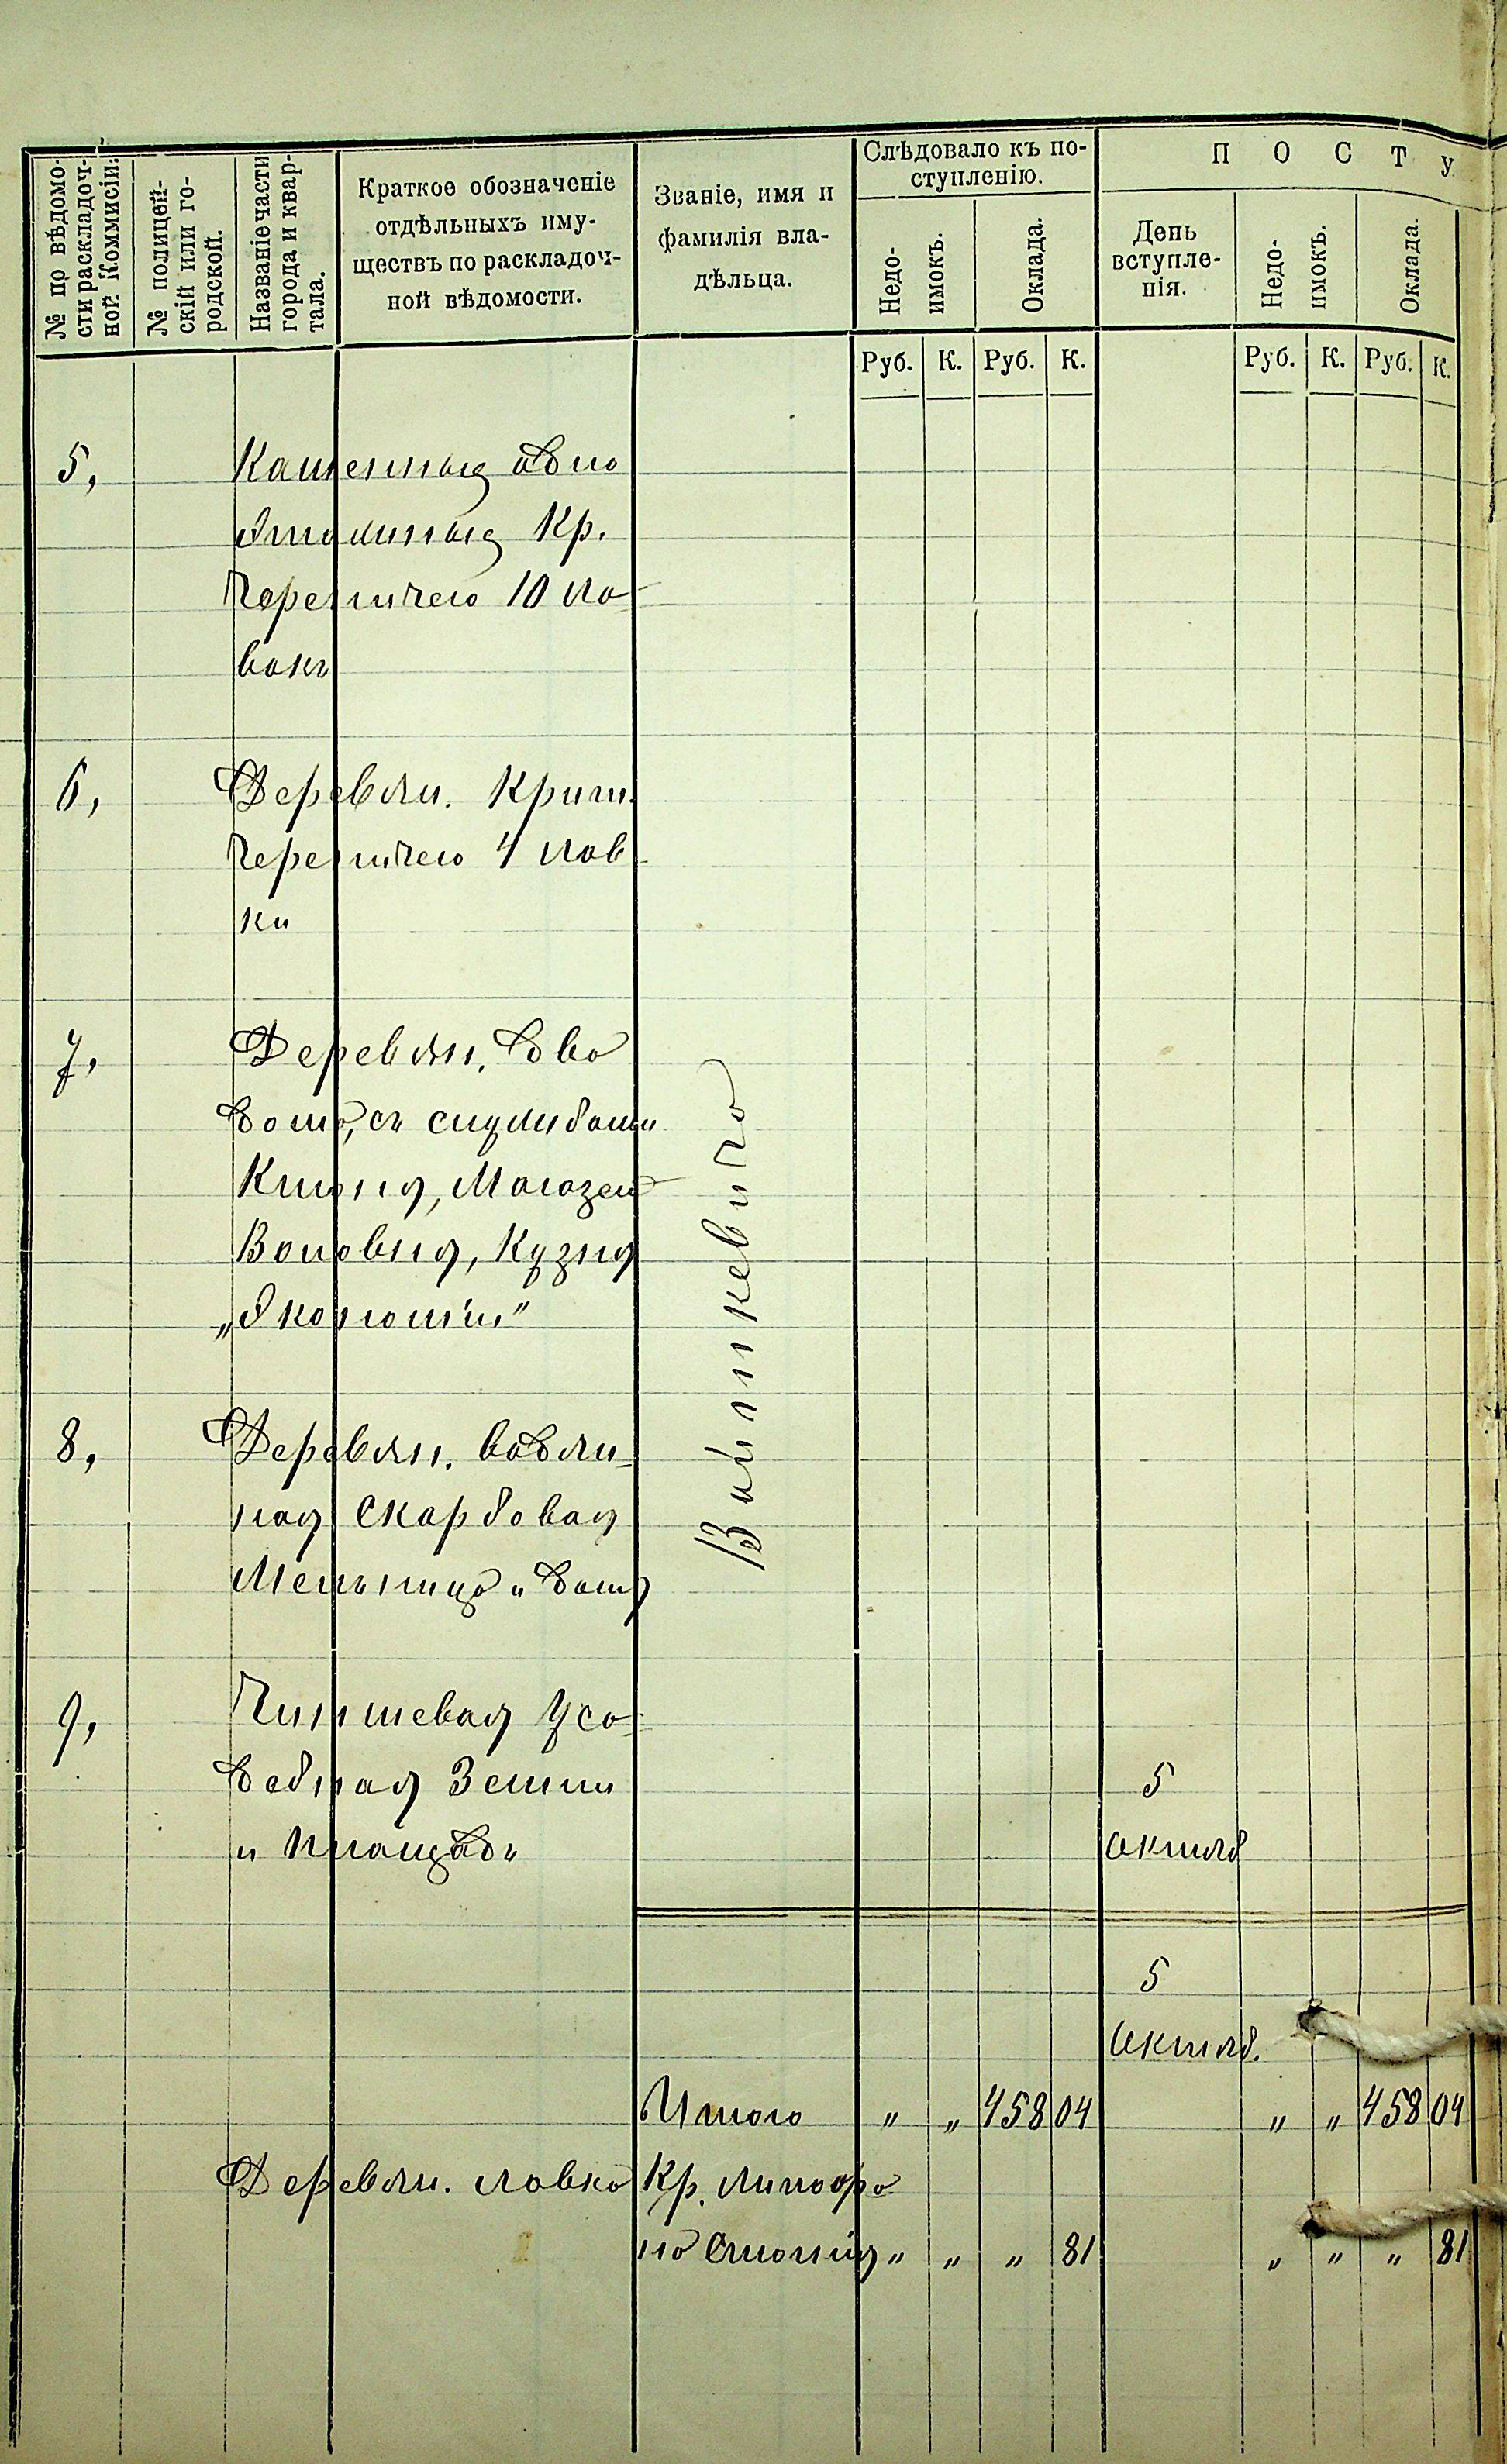 № по вѣдомо-
сти раскладоч-
ной Коммисіи.
№ полицей-
скій или го-
родской.
Названіе части
города и квар-
тала.
Краткое обозначеніе
отдѣльныхъ иму-
ществъ по раскладоч-
ной вѣдомости.
Званіе, имя и
фамилія вла-
дѣльца.
Слѣдовало къ по-
ступленію.
Недо-
имокъ.
Оклада.
П О С Т У
День
вступле-
нія.
Недо-
имокъ.
Оклада.
Руб. К. Руб. К. Руб. К. Руб. К.
5, Каменныя одно
этажныя Кр.
Черепичею 10 ла-
вокъ
6, Деревян. Крыт.
Черепичею 4 лав
ки
7, Деревян. два
дома, съ службами
Кухня, Магазей
Воловня, Кузня
„Экономіи"
8, Деревян. водян-
ная Скарбовая
Мельница и домъ
9, Чиншевая Уса-
дебная Земли
и площадь
Войткевича
5
октяб
5
октяб.
Итого „ „ 458 04 „ „ 458 04
Деревян. лавка Кр.
на „ „ „ 81 „ „ „ 81